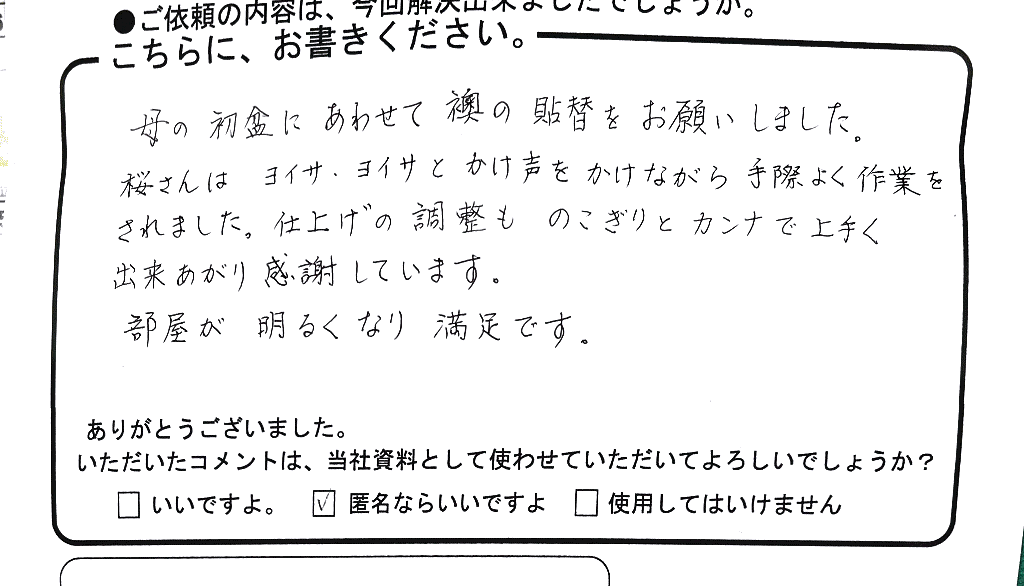 ●ご依頼の内容は、今回解決出来ましたでしょうか。
こちらに、お書きください。
母の初盆にあわせて襖の貼替をお願いしました。
桜さんは ヨイサ・ヨイサとかけ声をかけながら手際よく作業を
されました。仕上げの調整も のこぎりとカンナで上手く
出来あがり感謝しています。
部屋が明るくなり満足です。
ありがとうございました。
いただいたコメントは、当社資料として使わせていただいてよろしいでしょうか？
□ いいですよ。 ☑ 匿名ならいいですよ □ 使用してはいけません